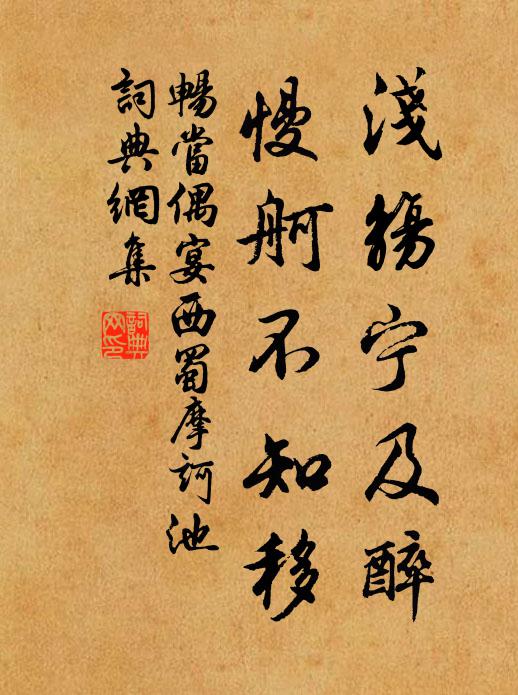 淺觴宁及醉
慢舸不知移
暢當偶宴西蜀摩訶池
詞典網集
詞典
网印